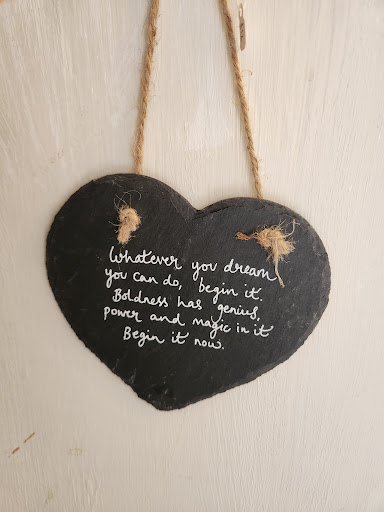 Whatever you dream
you can do, begin it.
Boldness has genius,
power and magic in it
Begin it now.